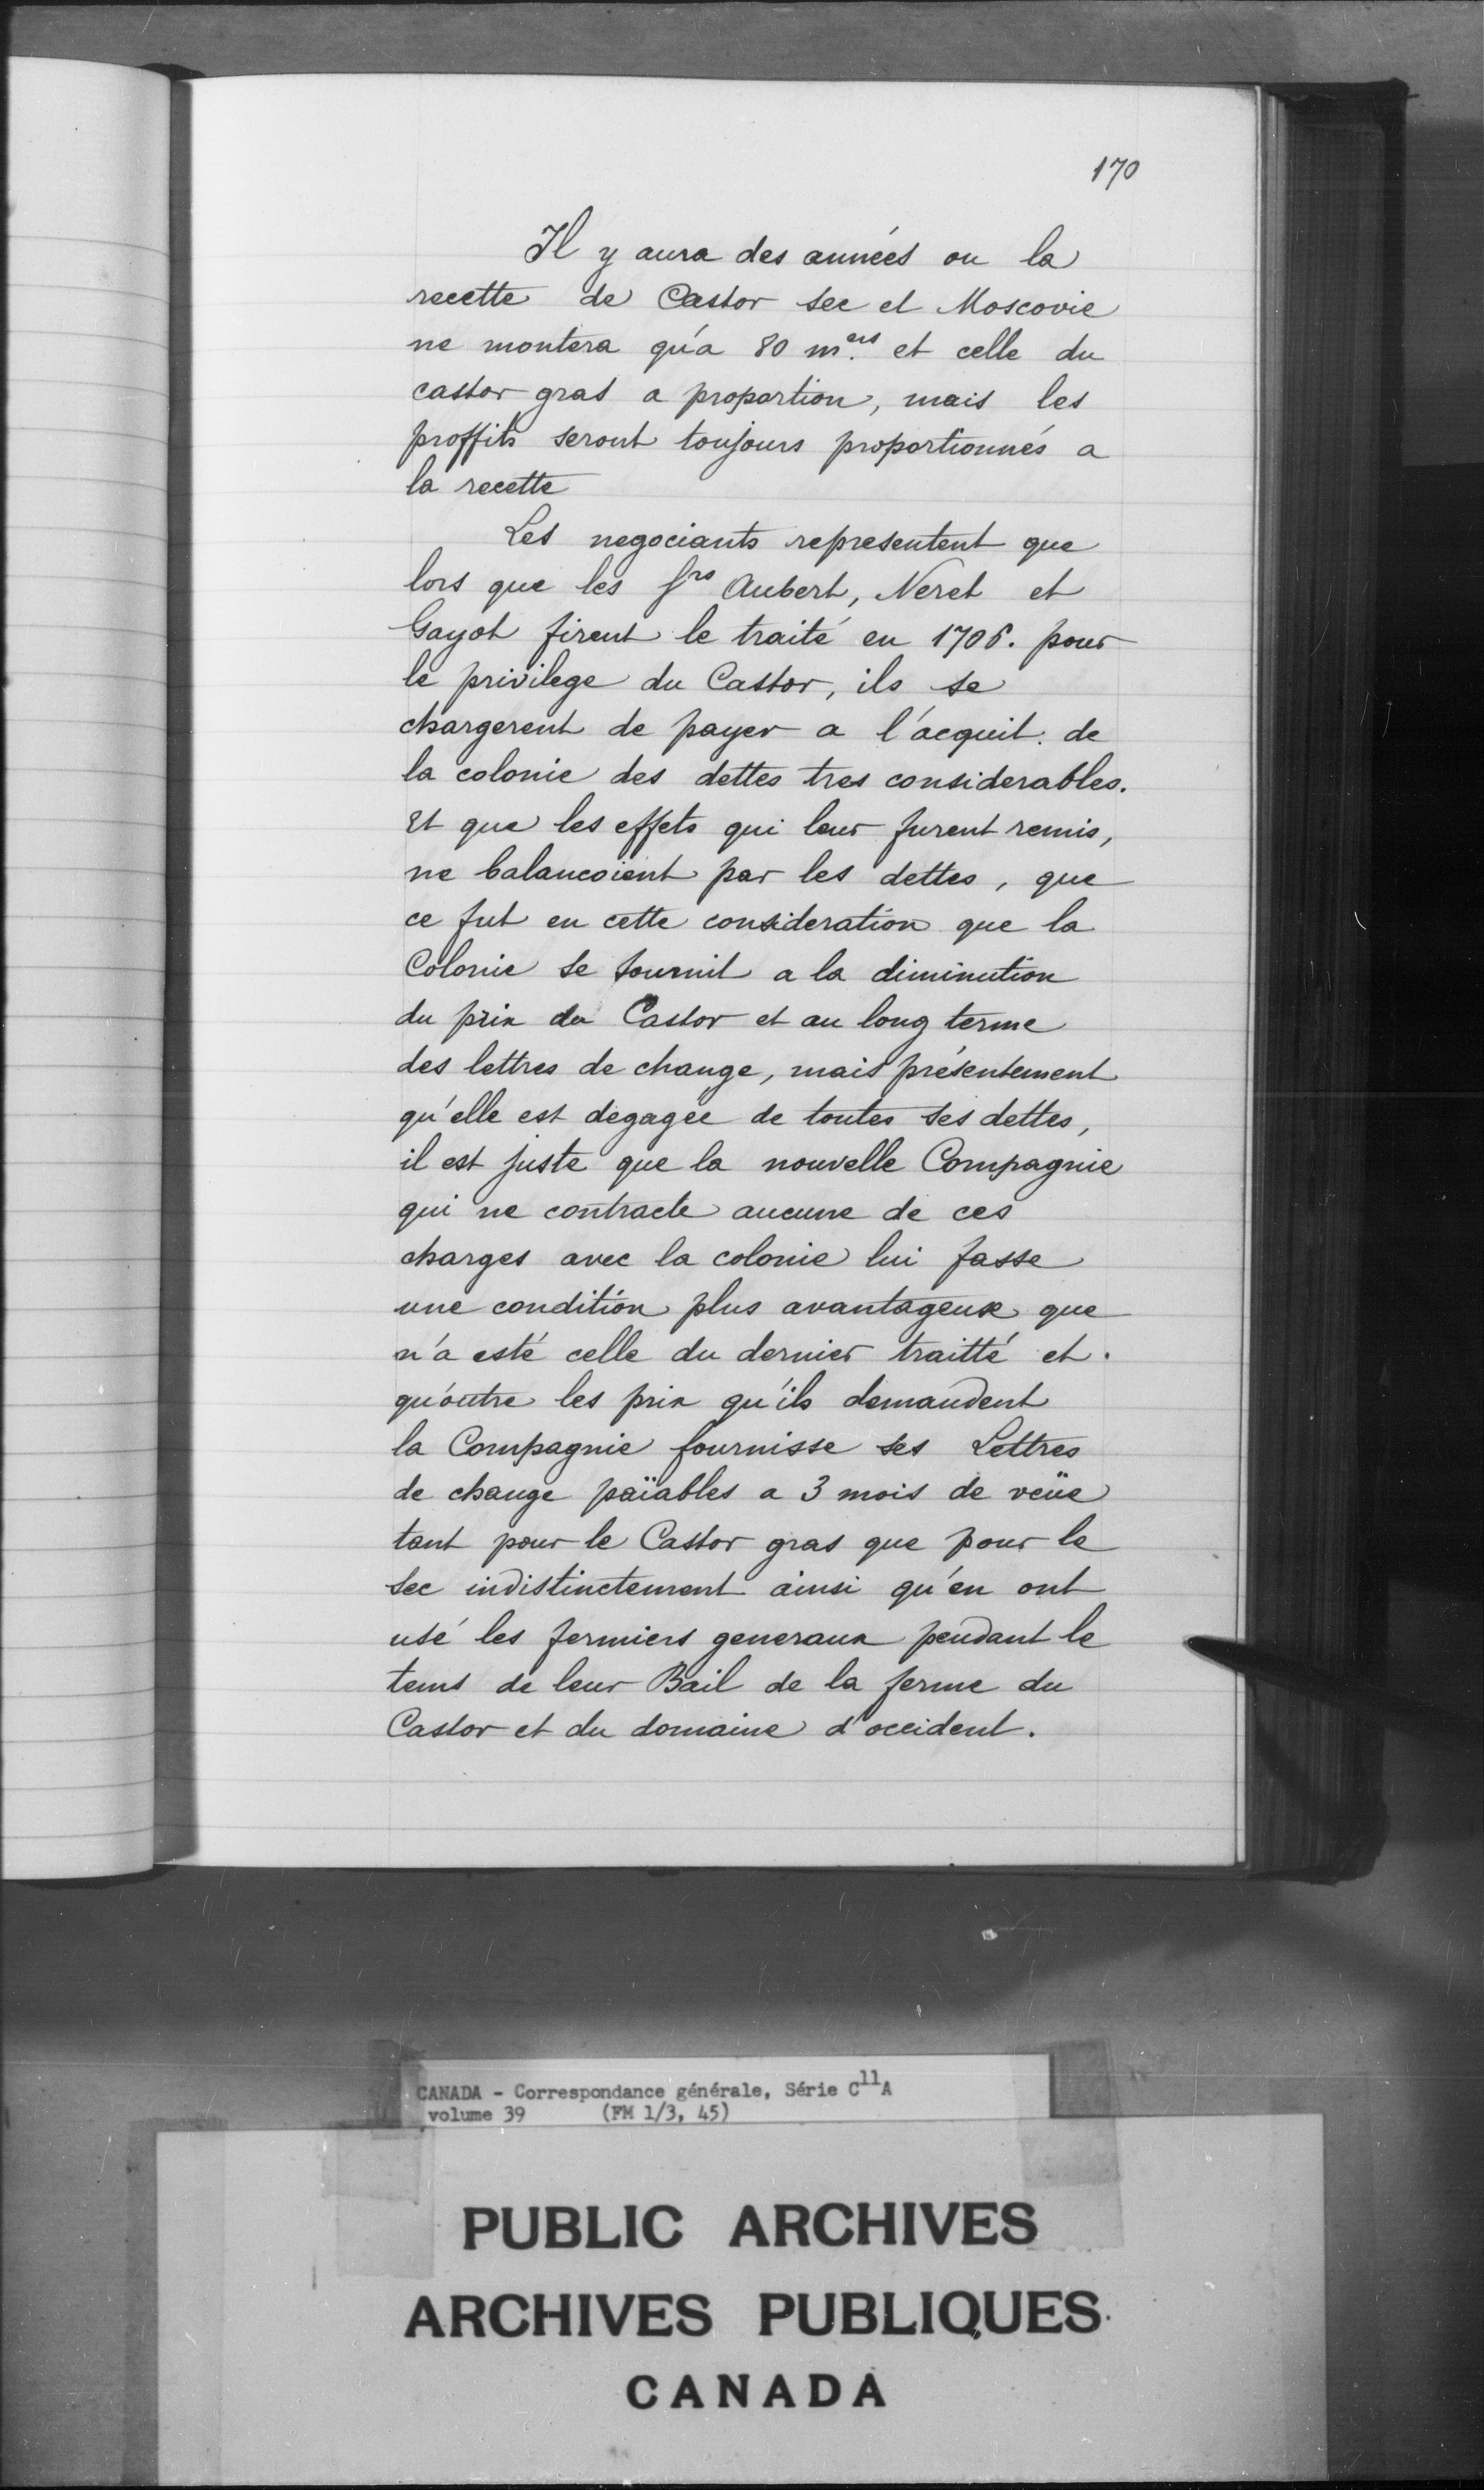 170
Il y aura des années ou la
recette de Castor sec et Moscovie
ne montera qu'a 80 m.ers et celle du
castor gras a proportion, mais les
proffits seront toujours proportionnés a
la recette
Les negociants representent que
lors que les Srs Aubert, Neret et
Gayot firent le traité en 1706. pour
le privilege du Castor, ils se
chargerent de payer a l'acquit. de
la colonie des dettes tres considerables.
Et que les effets qui leur furent remis,
ne balancoient par les dettes, que
ce fut en cette consideration que la
Colonie se soumit a la diminution
du prix du Castor et au long terme
des lettres de change, mais présentement
qu'elle est degagée de toutes ses dettes,
il est juste que la nouvelle Compagnie
qui ne contracte aucune de ces
charges avec la colonie lui fasse
une condition plus avantageuse que
n'a esté celle du dernier traitté et.
qu'outre les prix qu'ils demandent
la Compagnie fournisse ses Lettres
de change païables a 3 mois de veüe
tant pour le Castor gras que pour le
sec indistinctement ainsi qu'en ont
usé les fermiers generaux pendant le
tems de leur Bail de la ferme du
Castor et du domaine d'occident.
CANADA - Correspondance générale, Série C11A
volume 39 (FM 1/3, 45)
PUBLIC ARCHIVES
ARCHIVES PUBLIQUES
CANADA